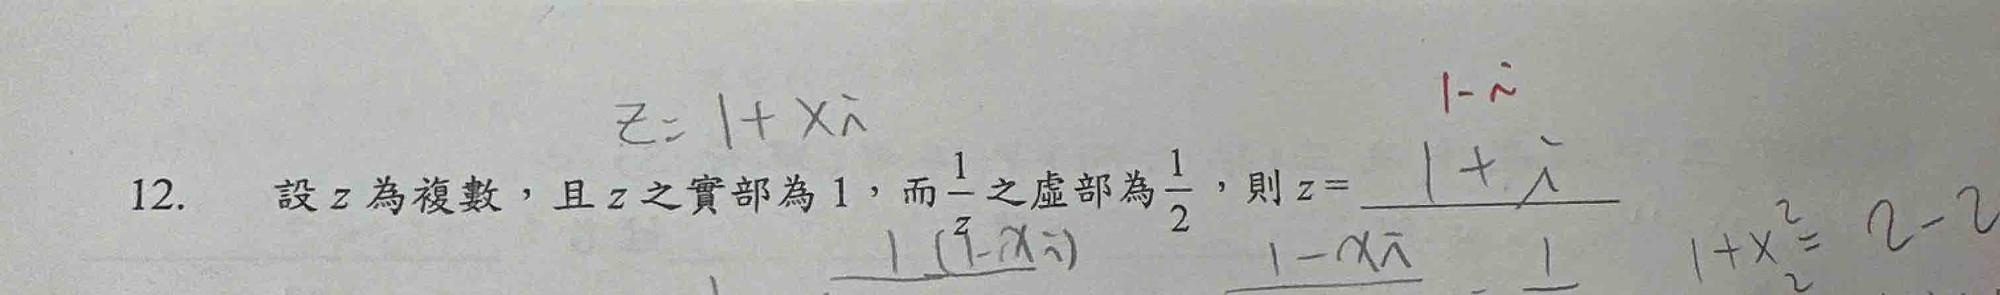 1-i
z= 1+xi
1+i
12. 設 z 為複數，且 z 之實部為 1，而 1/z 之虛部為 1/2，則 z=
1 (1-xi)
1-xi
1
1+x²= 2-2